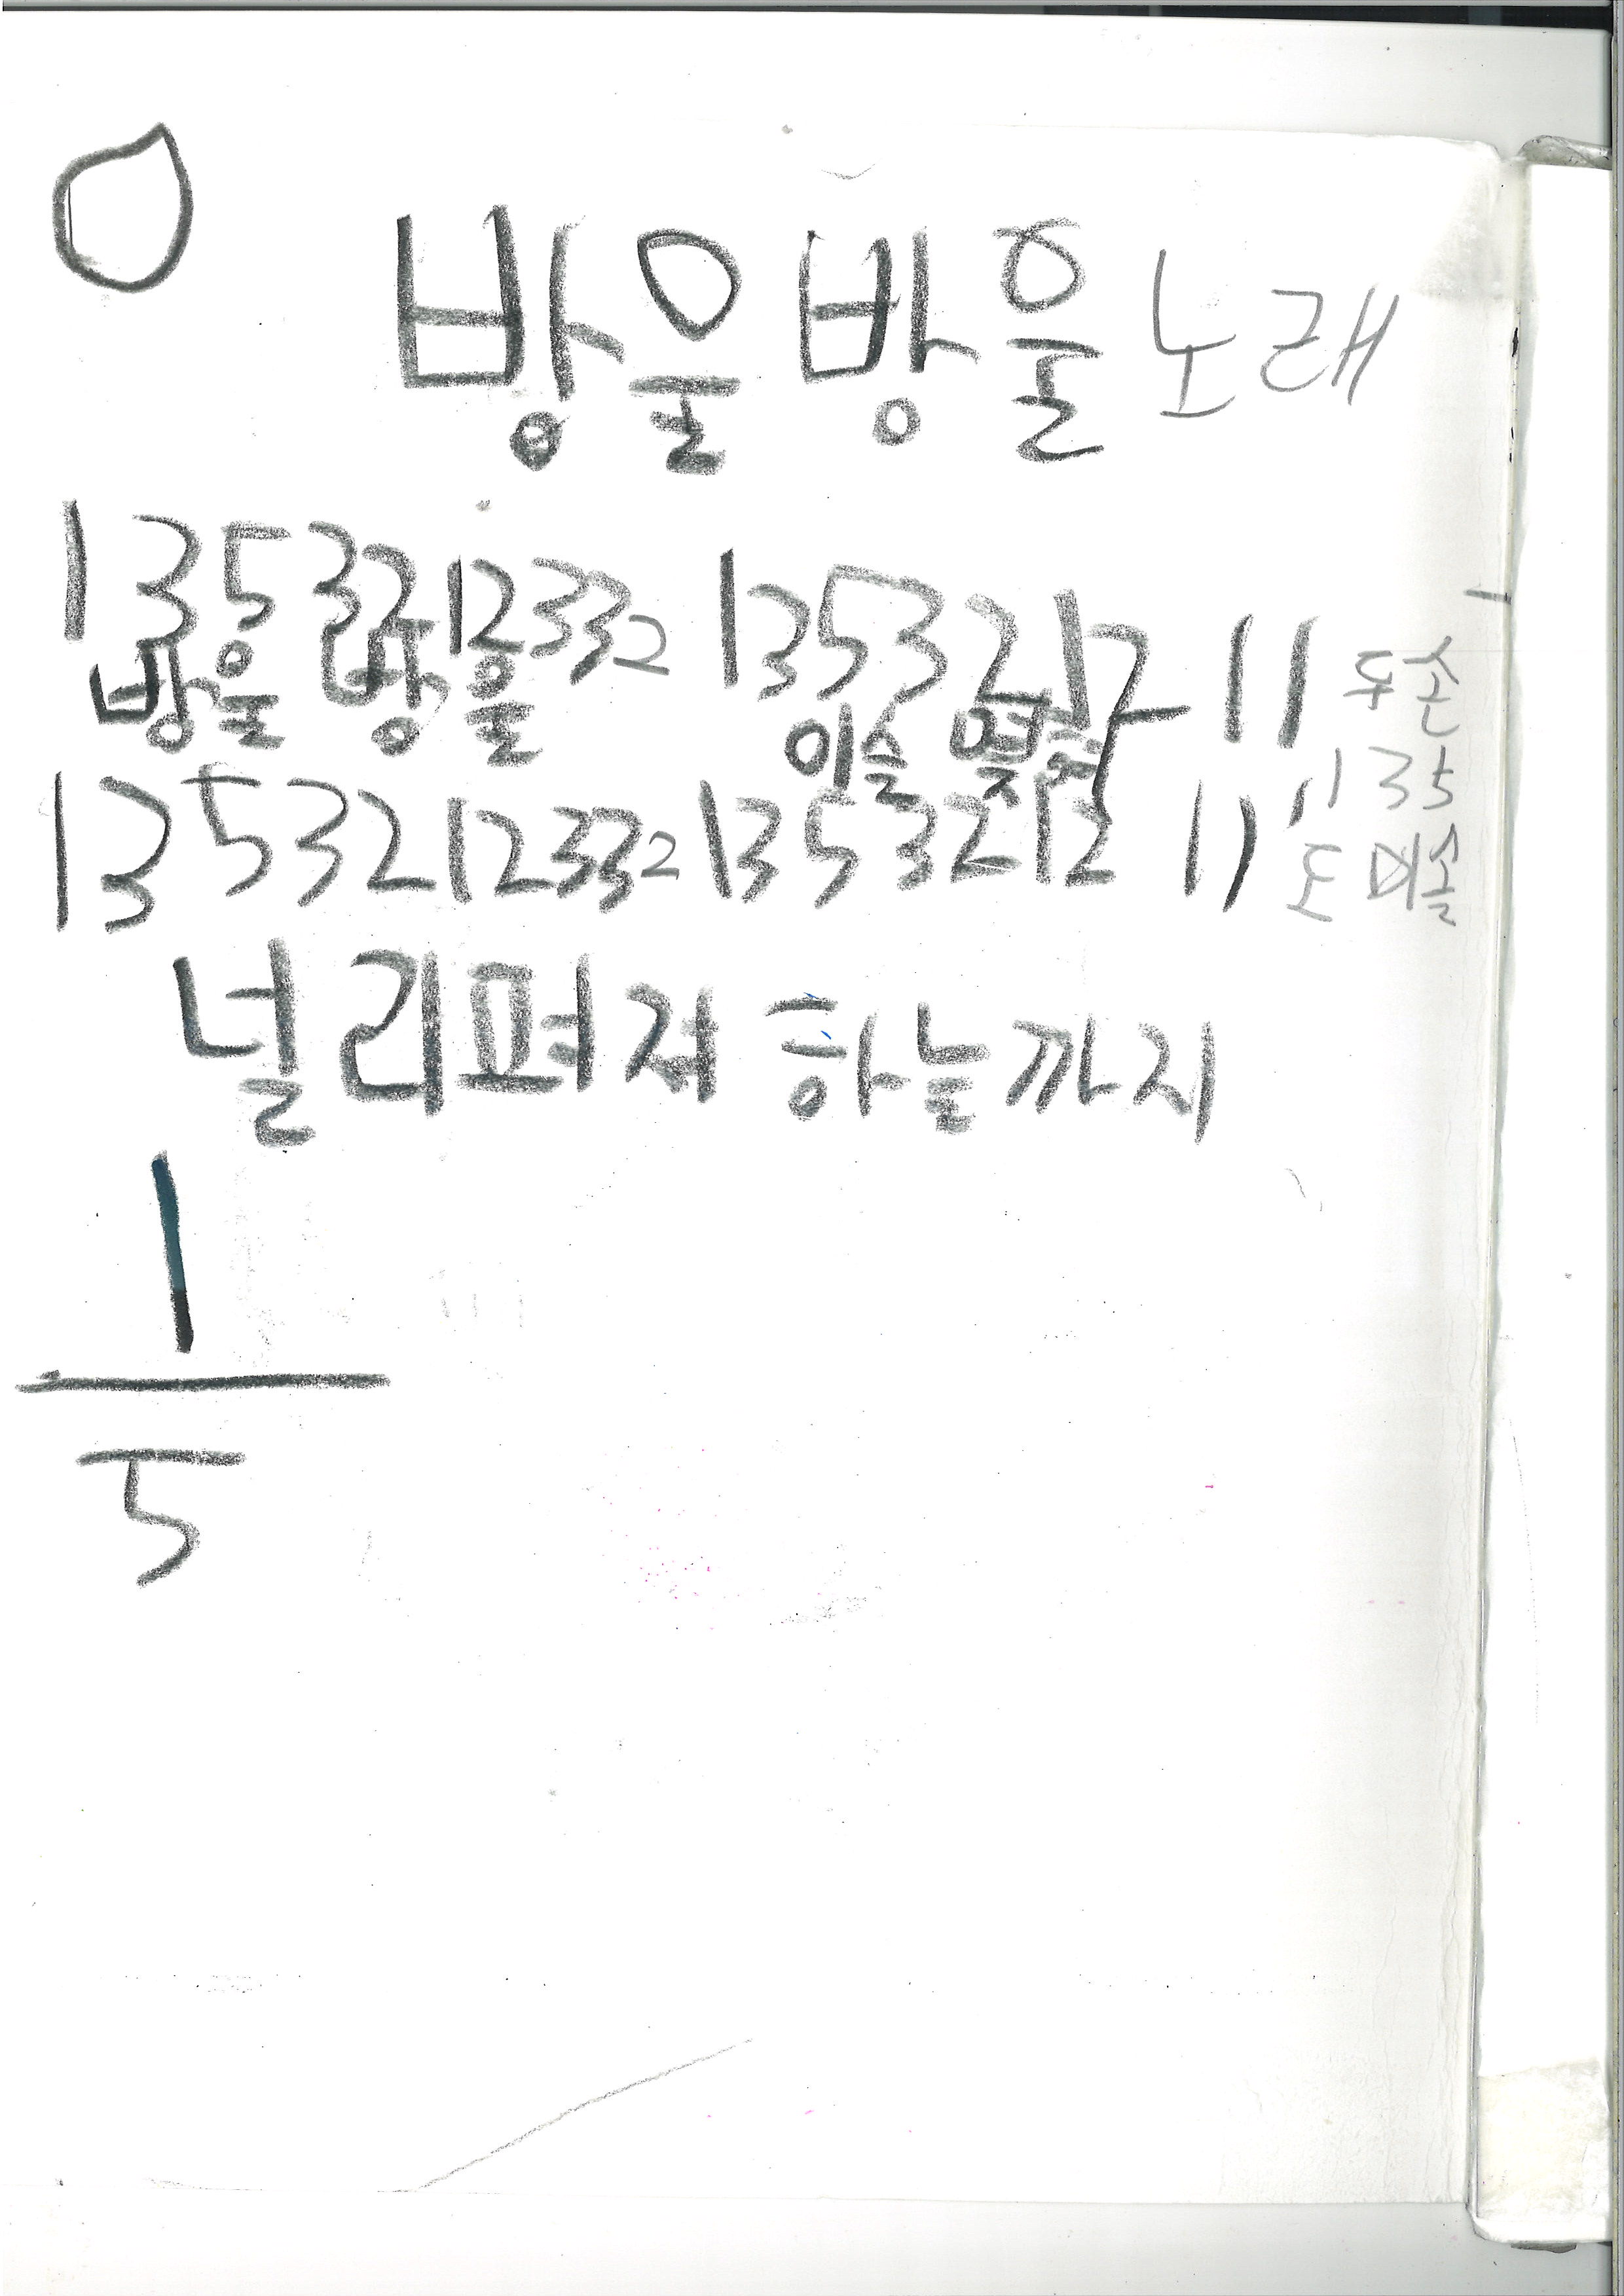 방울방울 노래
13532 12332 1353212 - 11
두손
방울 방울 이슬
135
13532 12332 1353212 11
도미솔
널리퍼져 하늘까지
1
5